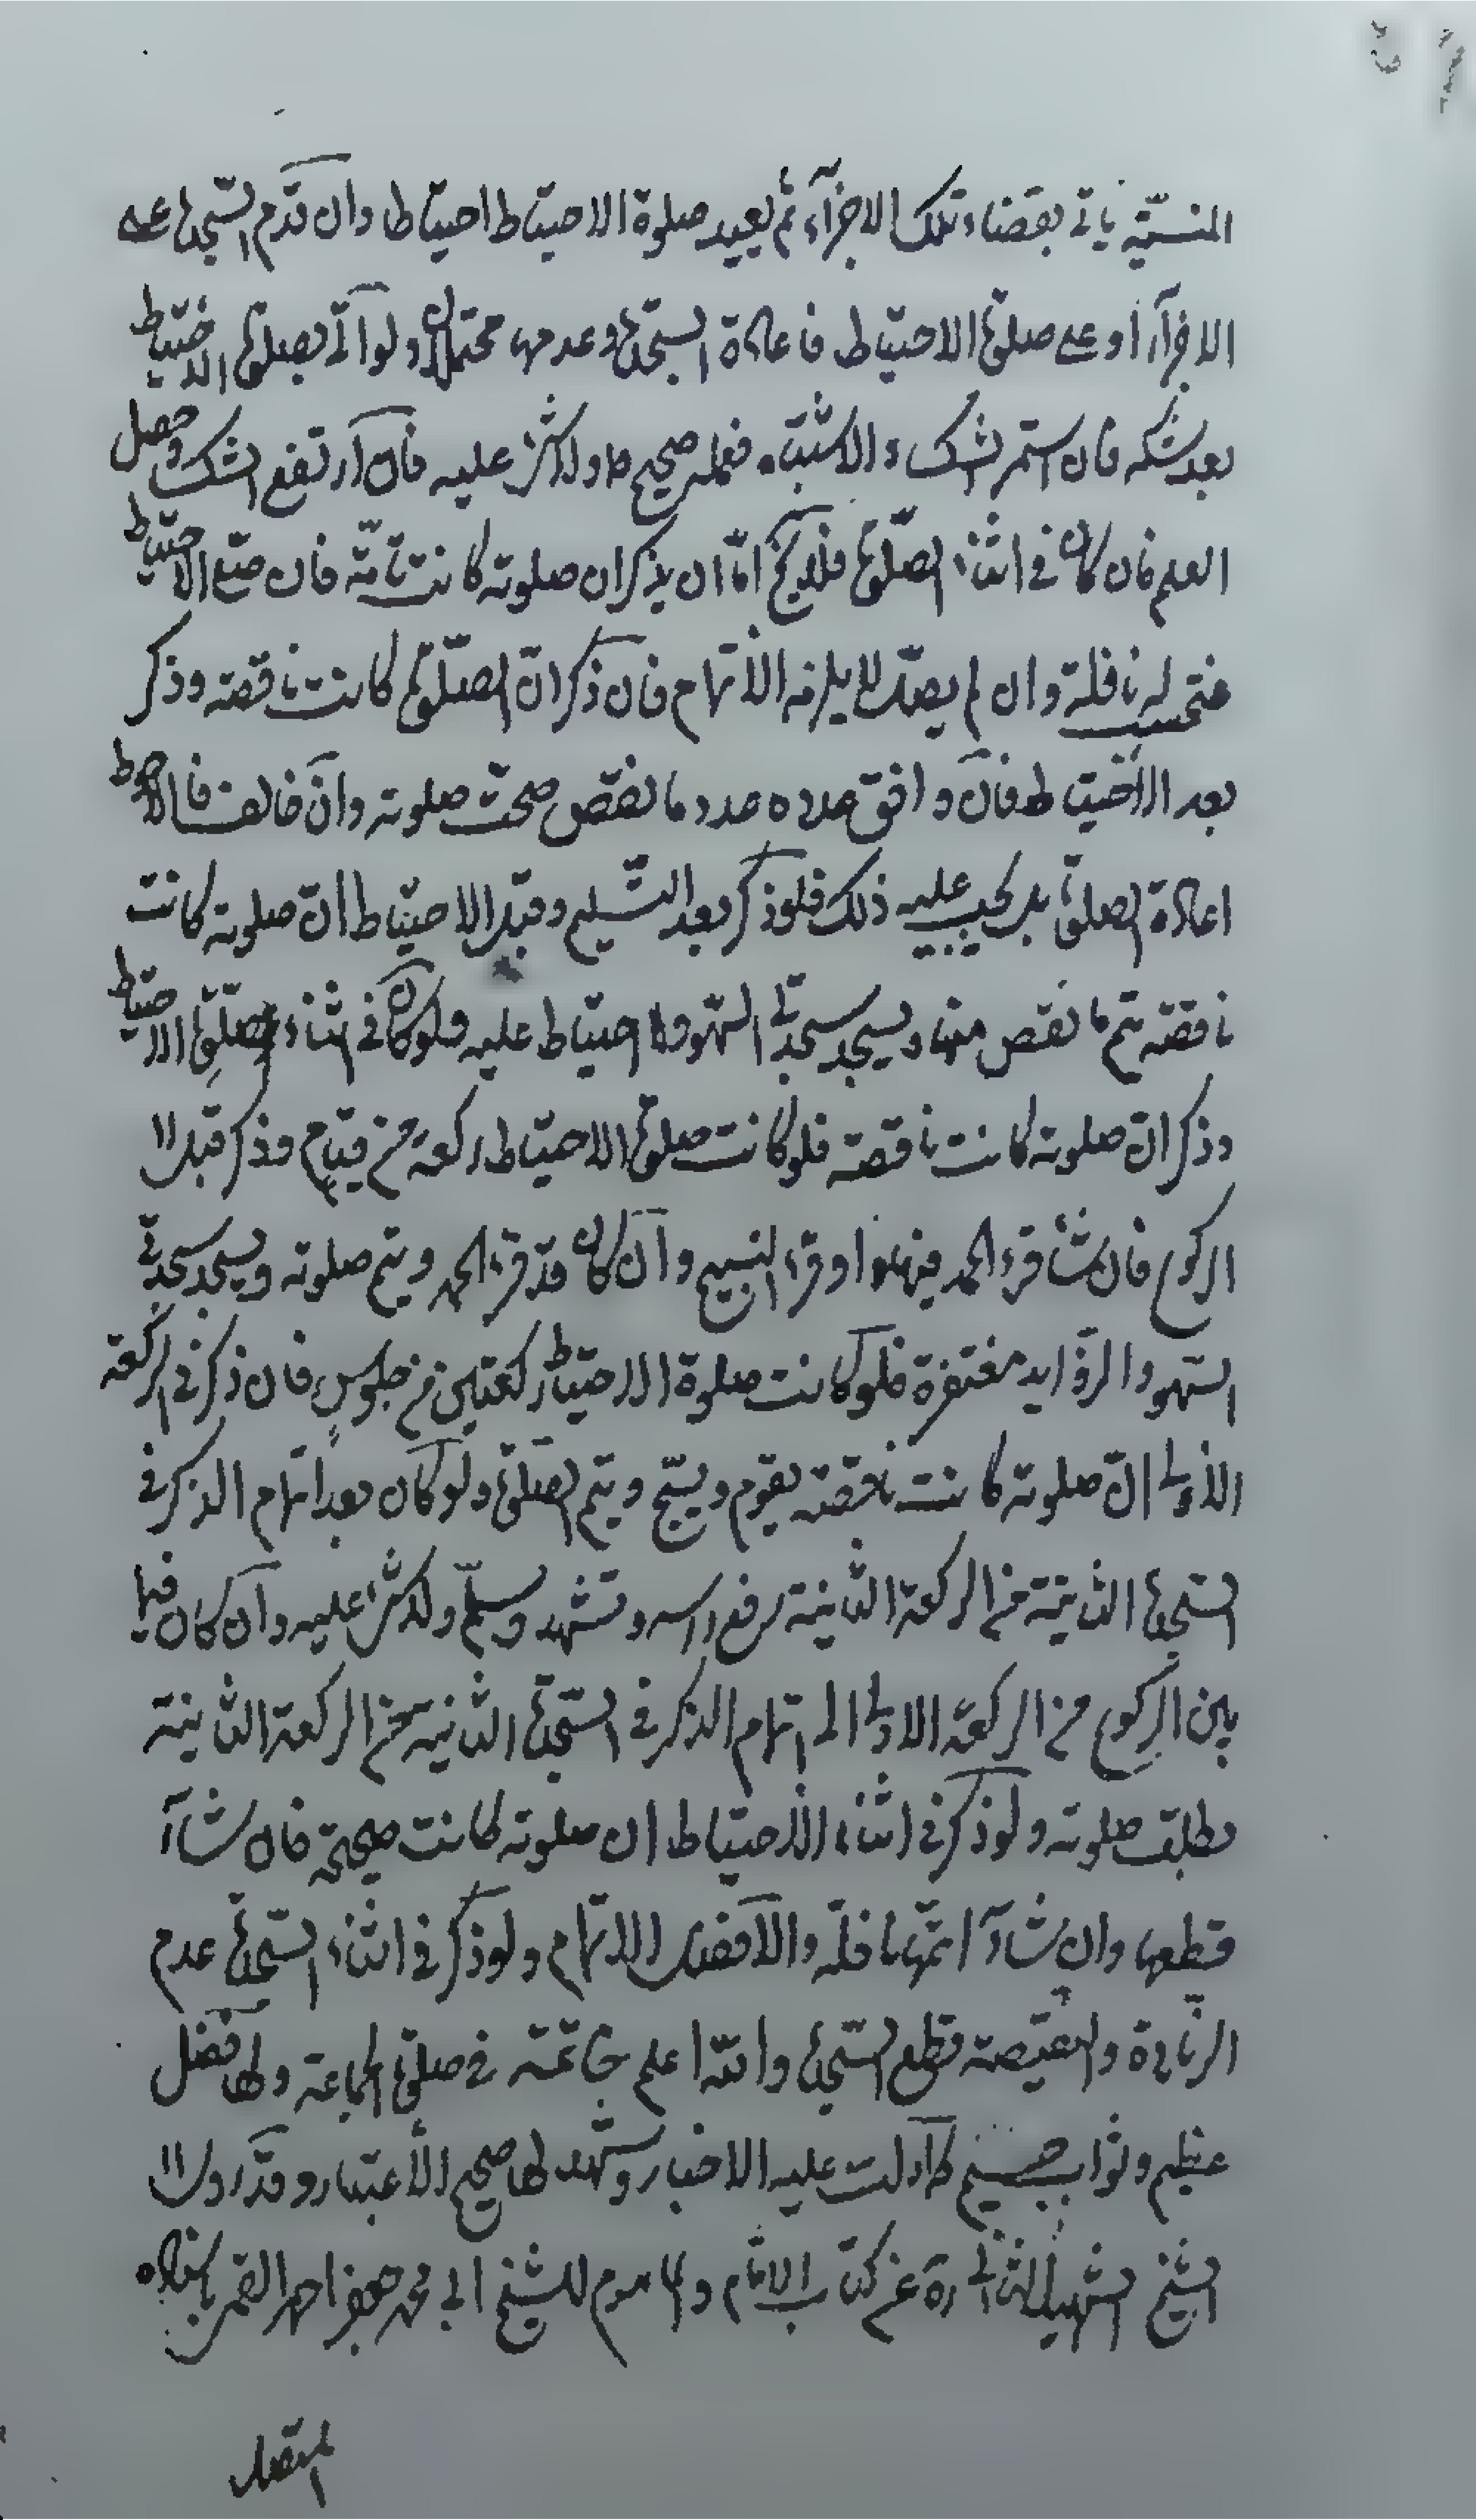 المنسيّة يأتي بقضاء تلك الاجزآء ثم يعيد صلوة الاحتياط احتياطا وان قدّم السّجدة على
الاجزآء او على صلوة الاحتياط فاعادة السّجدة وعدمها محتملان ولو أتى بصلوة الاحتياط
بعد شكه فان استمر الشك والاشتباه فعمله صحيح ولا شئ عليه فان ارتفع الشك وحصل
العلم فان كان في اثناء الصّلوة فلا يخ امّا ان يذكر ان صلوته كانت تامّة فان صلى الاحتياط
فتحسب له نافلة وان لم يصلّ لا يلزمه الأتمام فان ذكر انّ الصّلوة كانت ناقصة وذكر
بعد الأحتياط فان وافق عدده عدد ما نقص صحت صلوته وان خالف فالاحوط
اعادة الصلوة بل يجب عليه ذلك فلو ذكر بعد التّسليم وقبل الاحتياط انّ صلوته كانت
ناقصة يتم ما نقص منها ويسجد سجدتي السّهو ولا احتياط عليه ولو كان في اثناء صلوة الاحتياط
وذكر انّ صلوته كانت ناقصة فلو كانت صلوة الاحتياط ركعة من قيام وذكر قبل
الركوع فان شاء قرء الحمد فيها او قرء التسبيح وان كان قد قرء الحمد ويتم صلوته ويسجد سجدتي
السّهو والزّوايد مغتفرة فلو كانت صلوة الاحتياط ركعتين من جلوس فان ذكر في الركعة
الأولى انّ صلوته كانت ناقصة يقوم ويسبّح ويتم الصّلوة ولو كان بعد اتمام الذكر في
السّجدة الثانية من الركعة الثانية يرفع راسه وتشهد وسلّم ولا شئ عليه وان كان فيما
بين الركوع من الركعة الاولى الى اتمام الذكر في السّجدة الثانية من الركعة الثانية
بطلت صلوته ولو ذكر في اثناء الأحتياط ان صلوته كانت صحيحة فان شاء
قطعها وان شاء اتمّها نافلة والافضل الاتمام ولو ذكر في اثناء السّجدة عدم
الزّيادة والنقيصة قطع السّجدة واللّه اعلم خاتمة في صلوة الجماعة ولها فضل
عظيم وثواب جسيم كما دلت عليه الاخبار وشهد لها صحيح الأعتبار وقد روى
الشيخ الشهيد الثاني ره عن كتاب الامام والماموم للشيخ ابي محمد جعفر احمد القمي باسناده
المتصل